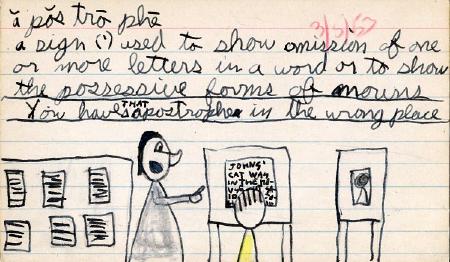 ă pŏs trō phē
a sign (') used to show omission of one
or more letters in a word or to show
the possessive forms of nouns
You have THAT apostrophe in the wrong place
JOHNS'
CAT WAS
IN THE